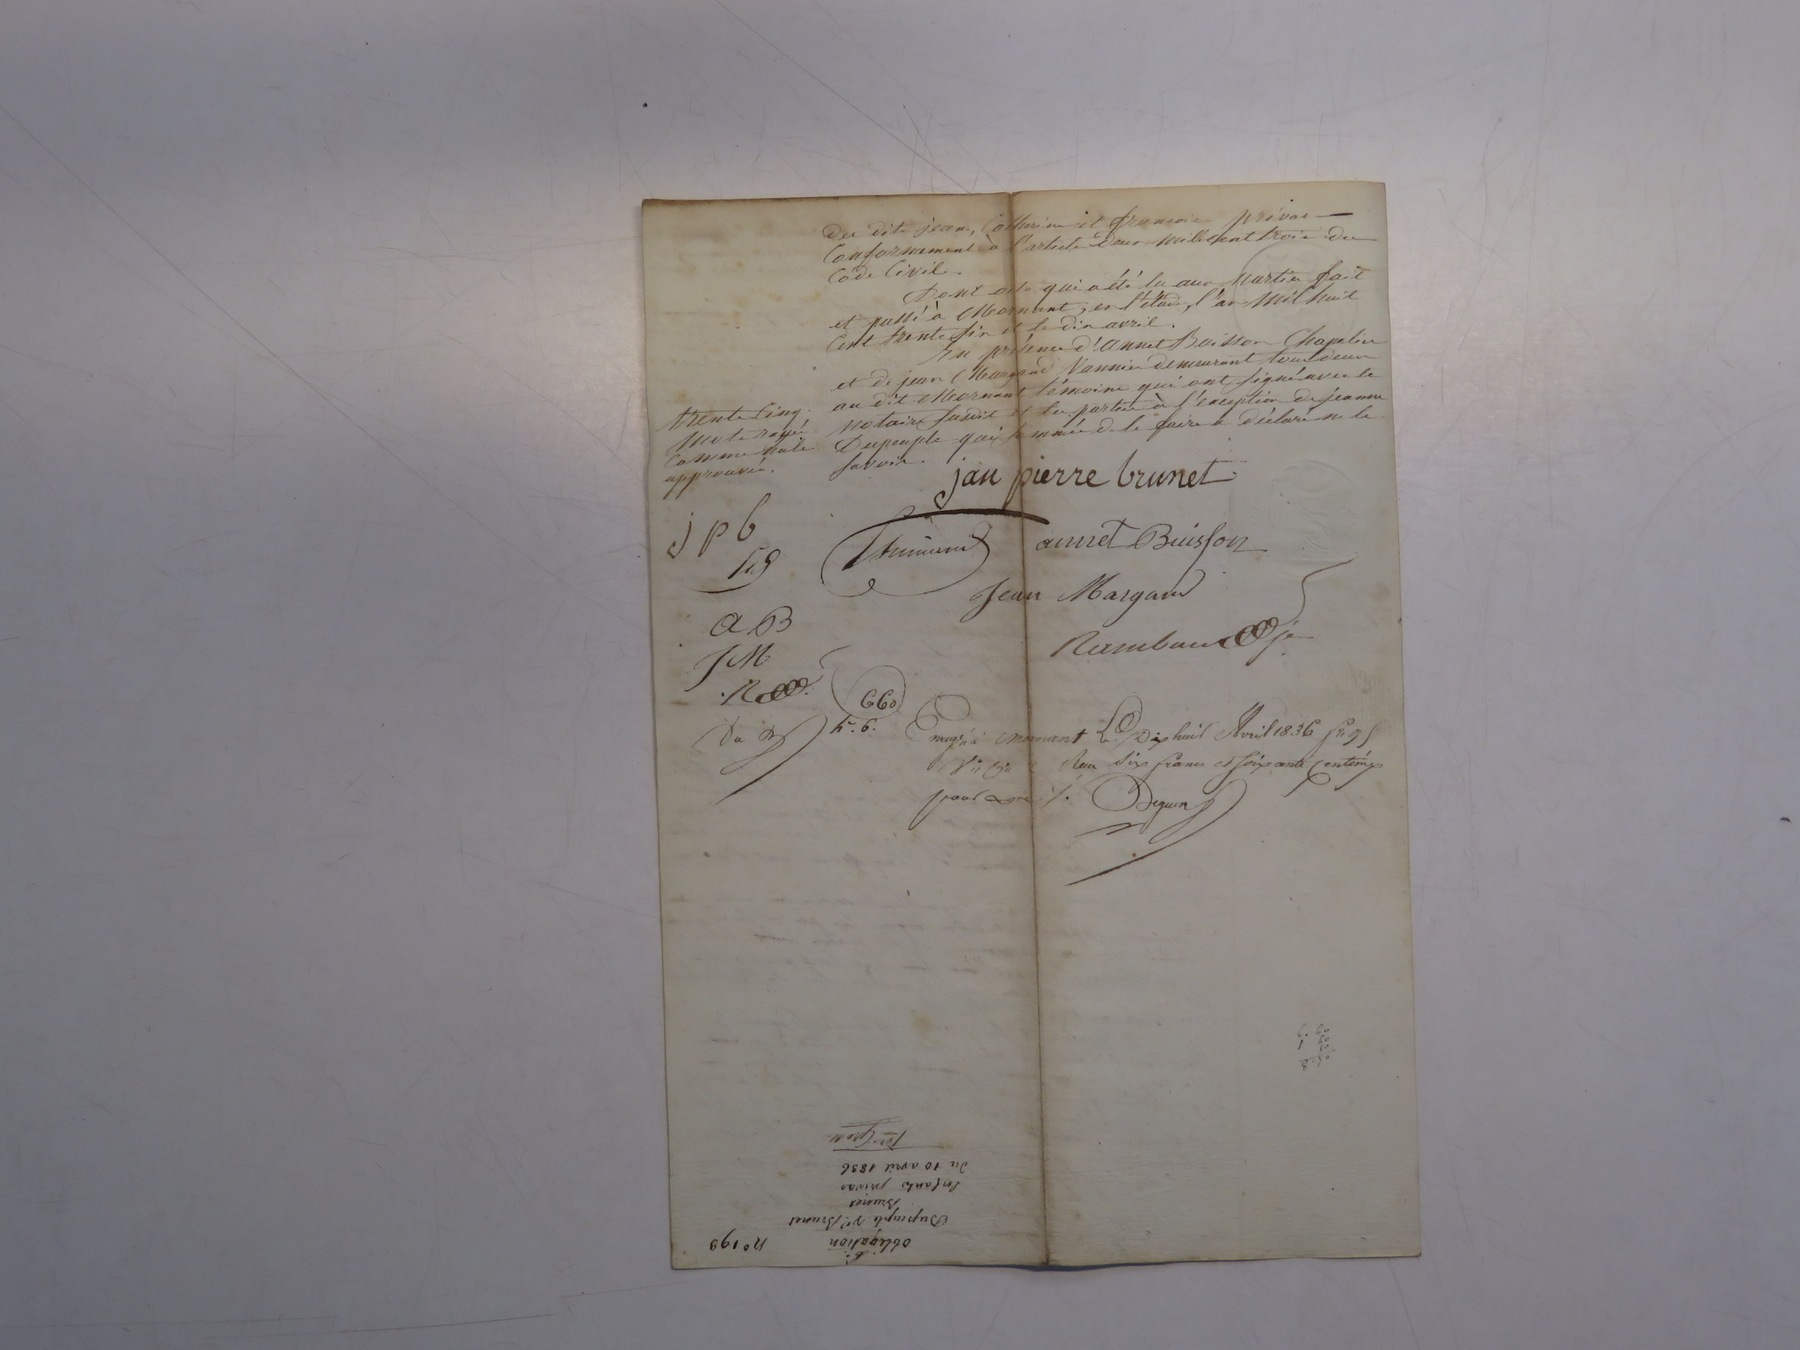 des dits jean, Catherine et françois privas —
Conformement à l'article deux mille cent trois du
Code Civil.
Dont acte qui a été lu aux parties fait
et passé à Mornant, en l'étude, l'an Mil huit
Cent trente six et le dix avril.
En présence d'annet Buisson Chapelier
et de jean Margand Vannier demeurant tous deux
au dit Mornant témoins qui ont signé avec le
notaire susdit et les parties à l'exception de jeanne
Dupeuple qui sommée de le faire a déclaré ne le
savoir.
trente cinq
mots rayés
comme nuls
approuvés.
jan pierre brunet
annet Buisson
Jean Margand
j p b
a B
J M
660
Enreg.é à Mornant Le Dix huit Avril 1836
Reçu six francs soixante centimes
6. 60
N° 193
obligation
Dupeuple Ve Brunet
Brunet
Enfants privas
du 10 avril 1836